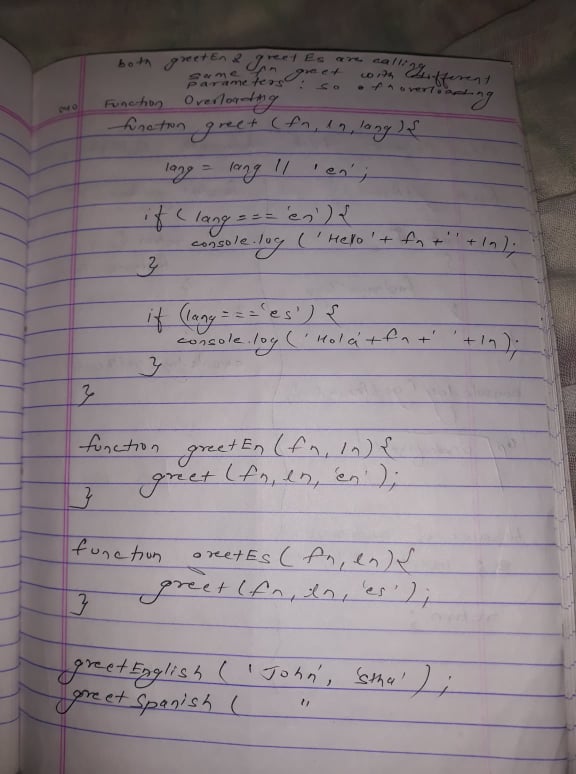 both greetEn & greet Es are calling
same fn greet with different
parameters : so fn overloading
Function Overloading
function greet (fn, ln, lang) {
lang = lang || 'en';
if ( lang === 'en') {
console.log ( 'Hello' + fn + ' ' + ln);
}
if (lang === 'es') {
console.log ( 'Hola' + fn + ' ' + ln);
}
}
function greetEn (fn, ln) {
greet (fn, ln, 'en');
}
function greetEs ( fn, ln) {
greet (fn, ln, 'es');
}
greetEnglish ( 'John', 'stha' );
greet Spanish ( "